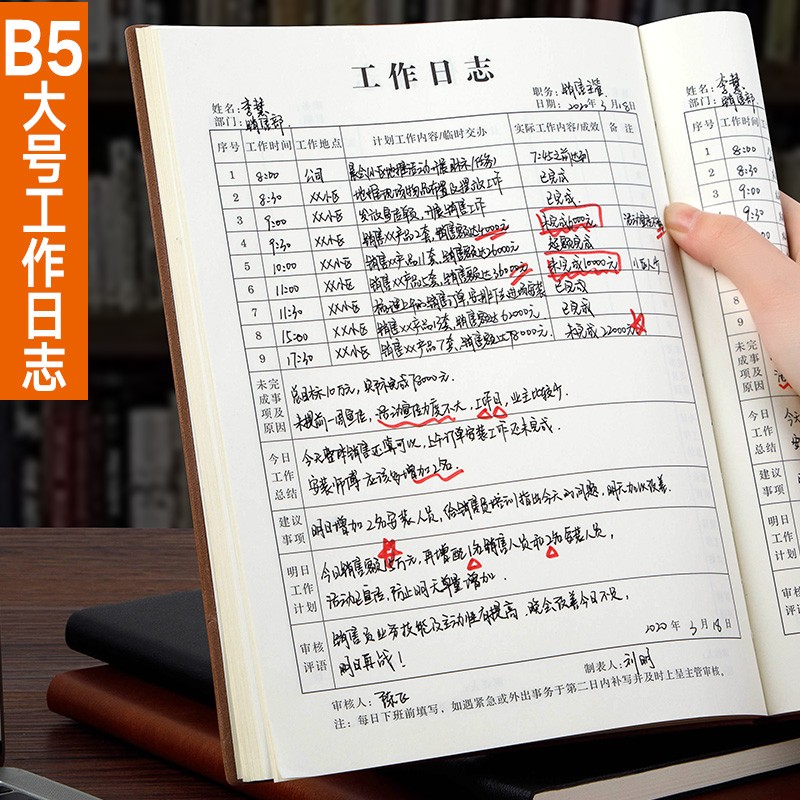 B5
大号工作日志
工作日志
姓名：李慧
职务：销售主管
部门：销售部
日期：2020年3月18日
序号 工作时间 工作地点 计划工作内容/临时交办 实际工作内容/成效 备注
1 8:00 公司 7:45之前达到
2 8:30 XX小区 已完成
3 9:00 XX小区 已完成
4 9:30 XX小区 销售XX产品2套,销售额达4000元 未完成6000元
5 10:00 XX小区 销售XX产品11套,销售额达26000元 超额完成
6 11:00 XX小区 销售XX产品5套,销售额达36000元 未完成10000元
7 11:30 XX小区 已完成
8 15:00 XX小区 销售XX产品13套,销售额达62000元 已完成
9 17:30 XX小区 销售XX产品7套,销售额达78000元 未完成22000元
未完成事项及原因
总目标10万元，实际完成78000元.
未提前一周宣传，活动宣传力度不大，工作日，业主比较少
今日工作总结
今天整体销售还算可以，上午订单安装工作还未完成.
安装师傅应该多增加2名.
建议事项
明日增加2名安装人员，给销售员培训指出今天的问题，明天加以改善.
明日工作计划
今日销售额15万元，再增配1名销售人员和2名安装人员，
活动上宣传，防止明天单量增加.
审核评语
销售员业务技能及主动性有提高.晚会改善今日不足，
明日再战！
2020年3月18日
制表人：刘明
审核人：陈飞
注：每日下班前填写，如遇紧急或外出事务于第二日内补写并及时上呈主管审核。
姓名：李慧
部门：销售部
序号 工作时间
1 8:00
2 8:30
3 9:00
4 9:30